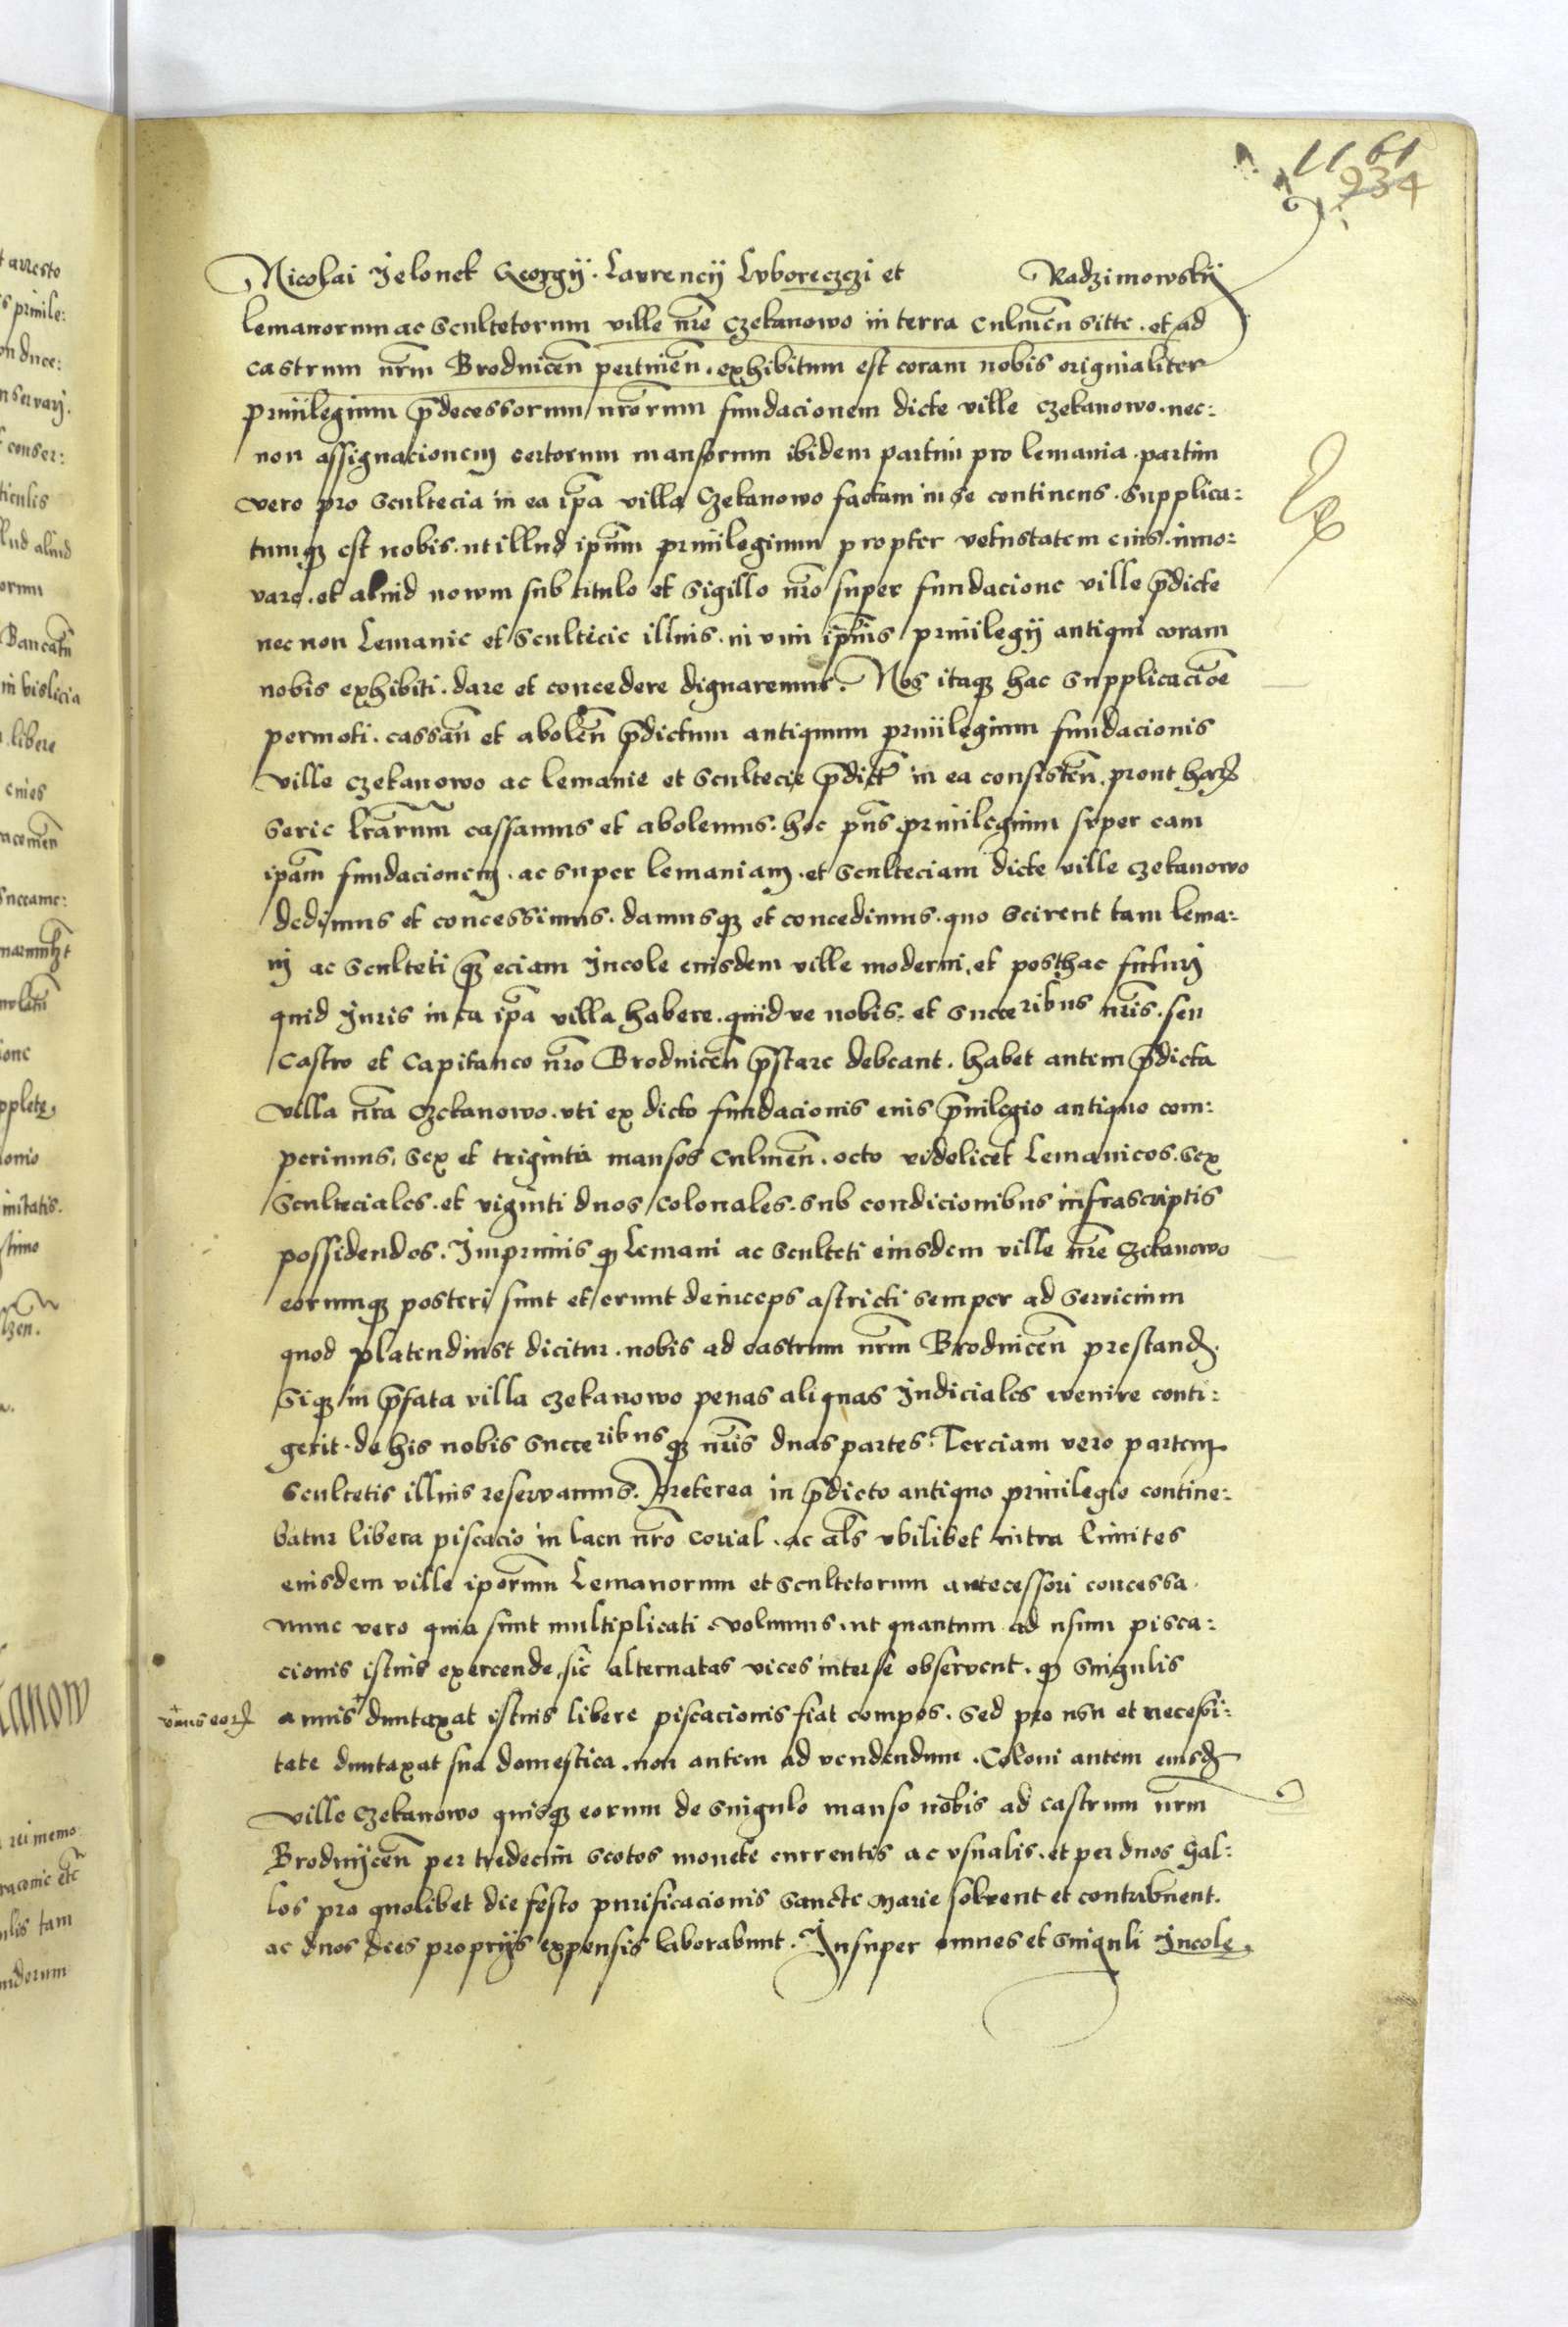 1161
234
Nicolai Jelonek Georgij . Laurencij Luboreczczi et Radzimowskij
lemanorum ac scultetorum ville nr̃e Czekanowo in terra culmeñ sitte . et ad
castrum nr̃m Brodniceñ pertineñ . exhibitum est coram nobis originaliter
priuilegium p̃decessorum nr̃orum fundacionem dicte ville Czekanowo . nec:
non assignacionem certorum mansorum ibidem partim pro lemania . partim
vero pro scultecia in ea ip̃a villa Czekanowo factam in se continens . supplica:
tumqȝ est nobis . ut illud ip̃um priuilegium propter vetustatem eius . inno:
vare . et aliud nowm sub titulo et sigillo nr̃o super fundacione ville p̃dicte
nec non Lemanie et sculticie illius . in vim ip̃ius priuilegij antiqui coram
nobis exhibiti . dare et concedere dignaremur . Nos itaqȝ hac supplicacõe
permoti . cassañ et aboleñ p̃dictum antiquum priuilegium fundacionis
ville Czekanowo ac lemanie et scultecie p̃dict̃ in ea consisteñ . prout harꝫ
serie lr̃arum cassamus et abolemus . hoc pñs priuilegium super eam
ip̃am fundacionem . ac super lemaniam . et sculteciam dicte ville Czekanowo
dedimus et concessimus . damusqȝ et concedimus . quo scirent tam lema:
nj ac sculteti qȝ eciam Incole eiusdem ville moderni . et posthac futurj
quid Juris in ea ip̃a villa habere . quid ve nobis . et succeribus nr̃is . seu
Castro et Capitaneo nr̃o Brodniceñ p̃stare debeant . habet autem p̃dicta
villa nr̃a Czekanowo . vti ex dicto fundacionis eius p̃uilegio antiquo com:
perimus . sex et triginta mansos culmeñ . octo videlicet Lemanicos . sex
sculteciales . et viginti duos colonales . sub condicionibus infrascriptis
possidendos . Imprimis qȝ Lemani ac sculteti eiusdem ville nr̃e Czekanowo
eorumqȝ posteri sunt et erunt deinceps astricti semper ad servicium
quod platendinst dicitur . nobis ad castrum nr̃m Brodniceñ prestandꝫ .
siqȝ in p̃fata villa Czekanowo penas aliquas Judiciales evenire conti:
gerit . de his nobis succeribusqȝ nr̃is duas partes : Terciam vero partem
scultetis illius reservamus . Preterea in p̃dicto antiquo priuilegio contine:
batur libera piscacio in lacu nr̃o Corial . ac als̃ vbilibet intra limites
eiusdem ville ip̃orum Lemanorum et scultetorum antecessori concessa .
nunc vero quia sunt multiplicati . volumus . ut quantum ad usum pisca:
cionis istius exercende . sic alternatas vices inter se observent . qȝ singulis
vnus eorꝫ
annis duntaxat istius libere piscacionis fiat compos . sed pro usu et necessi:
tate duntaxat sua domestica . non autem ad vendendum . Coloni autem eiusdꝫ
ville Czekanowo quisqȝ eorum de singulo manso nobis ad castrum nr̃m
Brodnijceñ per tredecim scotos monete currentis ac vsualis . et per duos Gal:
los pro quolibet die festo purificacionis sancte Marie solvent et contribuent .
ac duos dies proprijs expensis laborabunt . Insuper omnes et singuli Incole